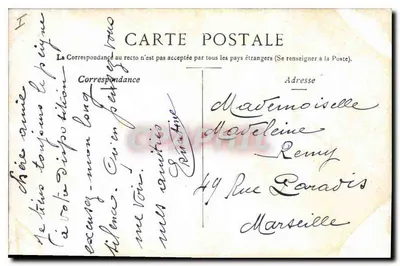 CARTE POSTALE
La Correspondance au recto n'est pas acceptée par tous les pays étrangers (Se renseigner à la Poste).
Correspondance
Adresse
Chère amie
Je tiens toujours le peigne
à votre disposition
excusez-mon long
silence. Qu'en pensez-vous
me voir.
mes amitiés
Mademoiselle
Madeleine
Remy
49 Rue Paradis
Marseille